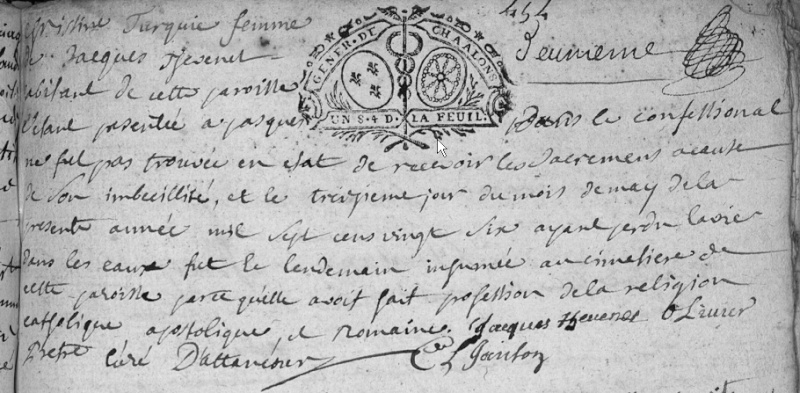 Christine Turquie femme
de Jacques
habitant de cette paroisse
s'étant présentée a pasques dans le confessional
ne fut pas trouvée en état de recevoir les Sacremens acause
de Son imbecillité, et le treizieme jour du mois de may de la
presente année mil Sept cens vingt Six ayant perdu la vie
dans les eaux fut le lendemain inhumée au cimetiere de
cette paroisse parce qu'elle avoit fait profession de la religion
catholique apostolique et Romaine. Jacques
Pretre Curé D'attancour
GENER · DE CHAALONS
UN S · 4 D · LA FEUIL ·
454
Deumeme